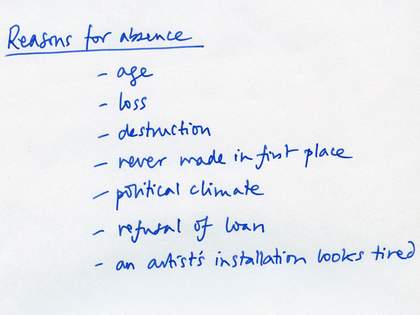 Reasons for absence
- age
- loss
- destruction
- never made in first place
- political climate
- refusal of loan
- an artist's installation looks tired